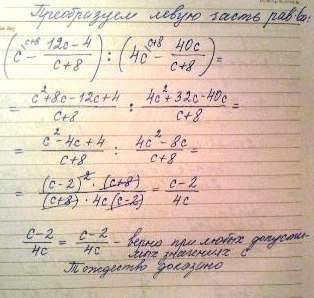 Преобразуем левую часть рав-ва:
(c^{\c+8} - \frac{12c-4}{c+8}) : (4c^{\c+8} - \frac{40c}{c+8}) =
= \frac{c²+8c-12c+4}{c+8} : \frac{4c²+32c-40c}{c+8} =
= \frac{c²-4c+4}{c+8} : \frac{4c²-8c}{c+8} =
= \frac{(c-2)² · (c+8)}{(c+8) · 4c(c-2)} = \frac{c-2}{4c}
\frac{c-2}{4c} = \frac{c-2}{4c} - верно при любых допусти-
мых значениях c
Тождество доказано